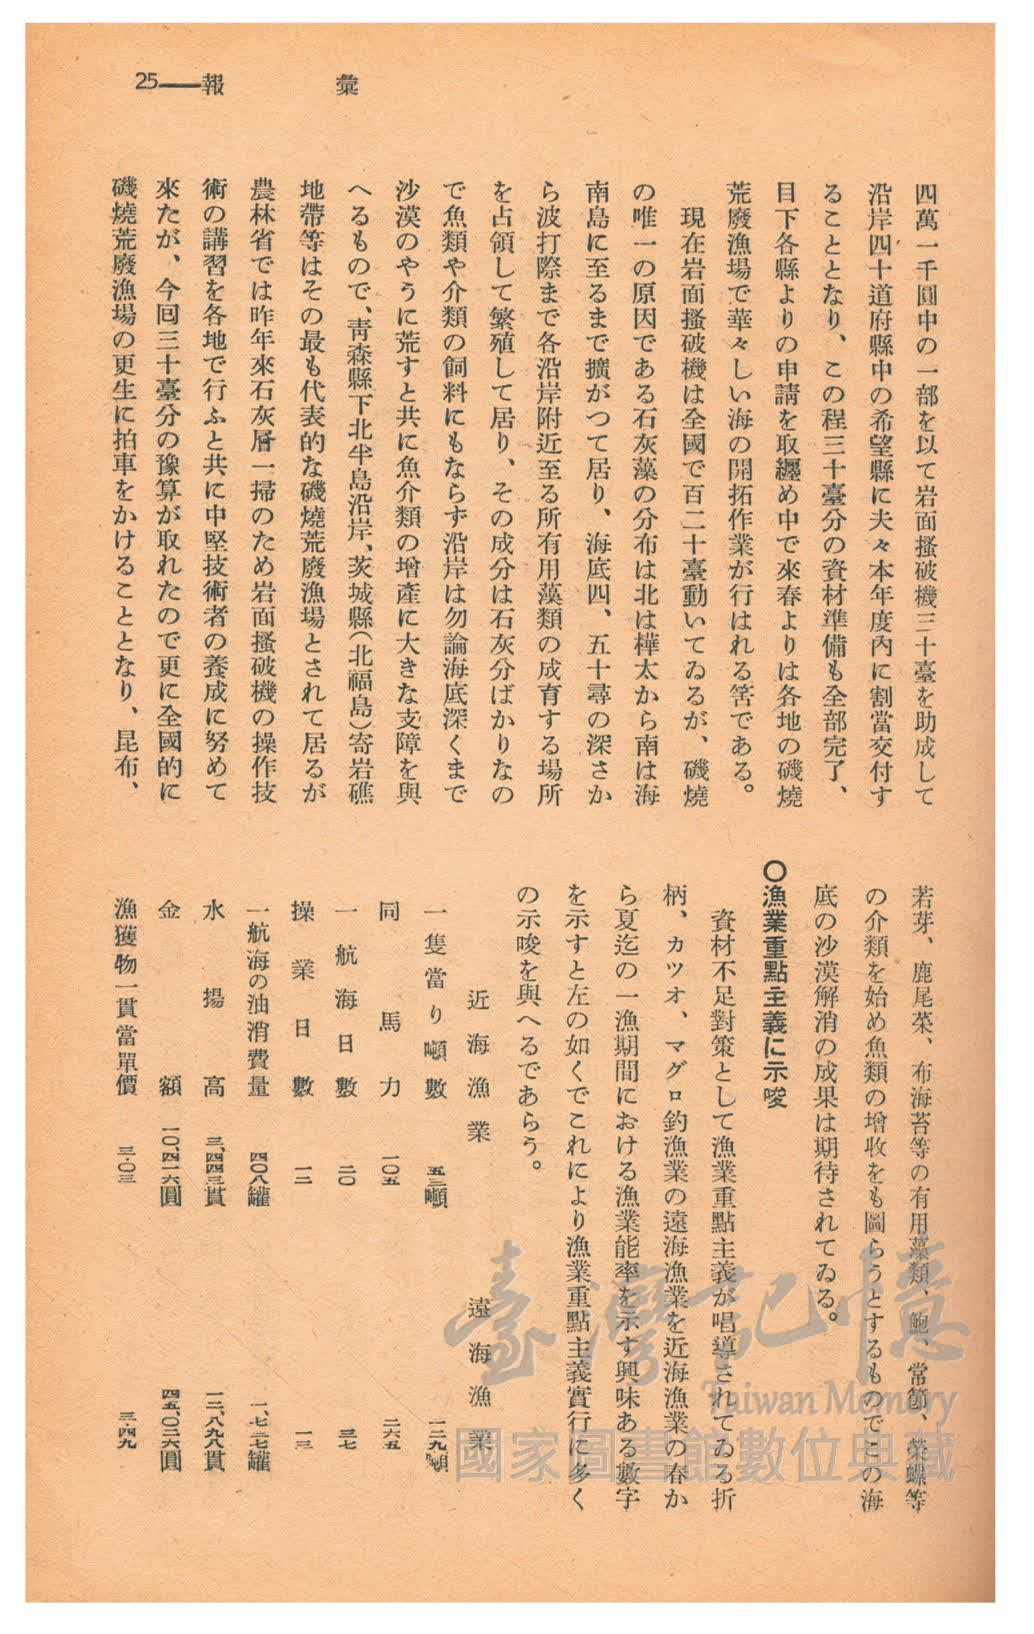 彙報——25
四萬一千圓中の一部を以て岩面搔破機三十臺を助成して
沿岸四十道府縣中の希望縣に夫々本年度內に割當交付す
ることとなり、この程三十臺分の資材準備も全部完了、
目下各縣よりの申請を取纒め中で來春よりは各地の磯燒
荒廢漁場で華々しい海の開拓作業が行はれる筈である。
現在岩面搔破機は全國で百二十臺動いてゐるが、磯燒
の唯一の原因である石灰藻の分布は北は樺太から南は海
南島に至るまで擴がつて居り、海底四、五十尋の深さか
ら波打際まで各沿岸附近至る所有用藻類の成育する場所
を占領して繁殖して居り、その成分は石灰分ばかりなの
で魚類や介類の飼料にもならず沿岸は勿論海底深くまで
沙漠のやうに荒すと共に魚介類の增產に大きな支障を與
へるもので、靑森縣下北半島沿岸、茨城縣（北福島）寄岩礁
地帶等はその最も代表的な磯燒荒廢漁場とされて居るが
農林省では昨年來石灰層一掃のため岩面搔破機の操作技
術の講習を各地で行ふと共に中堅技術者の養成に努めて
來たが、今回三十臺分の豫算が取れたので更に全國的に
磯燒荒廢漁場の更生に拍車をかけることとなり、昆布、
若芽、鹿尾菜、布海苔等の有用藻類、鮑、常節、榮螺等
の介類を始め魚類の增收をも圖らうとするものでこの海
底の沙漠解消の成果は期待されてゐる。
〇漁業重點主義に示唆
資材不足對策として漁業重點主義が唱導されてゐる折
柄、カツオ、マグロ釣漁業の遠海漁業を近海漁業の春か
ら夏迄の一漁期間における漁業能率を示す興味ある數字
を示すと左の如くでこれにより漁業重點主義實行に多く
の示唆を與へるであらう。
近海漁業 遠海漁業
一隻當り噸數 五三噸 一二九噸
同馬力 一〇五 二六五
一航海日數 二〇 三七
操業日數 一二 一三
一航海の油消費量 四〇八罐 一、七二七罐
水揚高 三、四四三貫 一二、八九八貫
金額 一〇、四一六圓 四五、〇二六圓
漁獲物一貫當單價 三・〇三 三・四九
臺灣記憶
Taiwan Memory
國家圖書館數位典藏